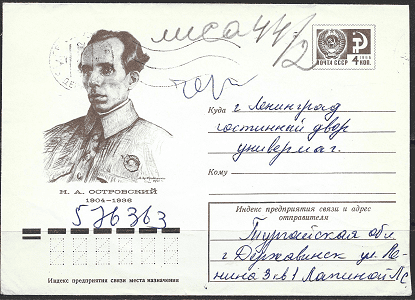 лиса 44/2
ПОЧТА СССР
1966
4 КОП.
Куда г. Ленинград
гостинный двор
универмаг.
Кому
Н. А. ОСТРОВСКИЙ
1904–1936
576363
Индекс предприятия связи места назначения
Индекс предприятия связи и адрес отправителя
Тургайская обл
г Державинск ул. Ле-
нина 3 кв 1 Лапиной ЛС